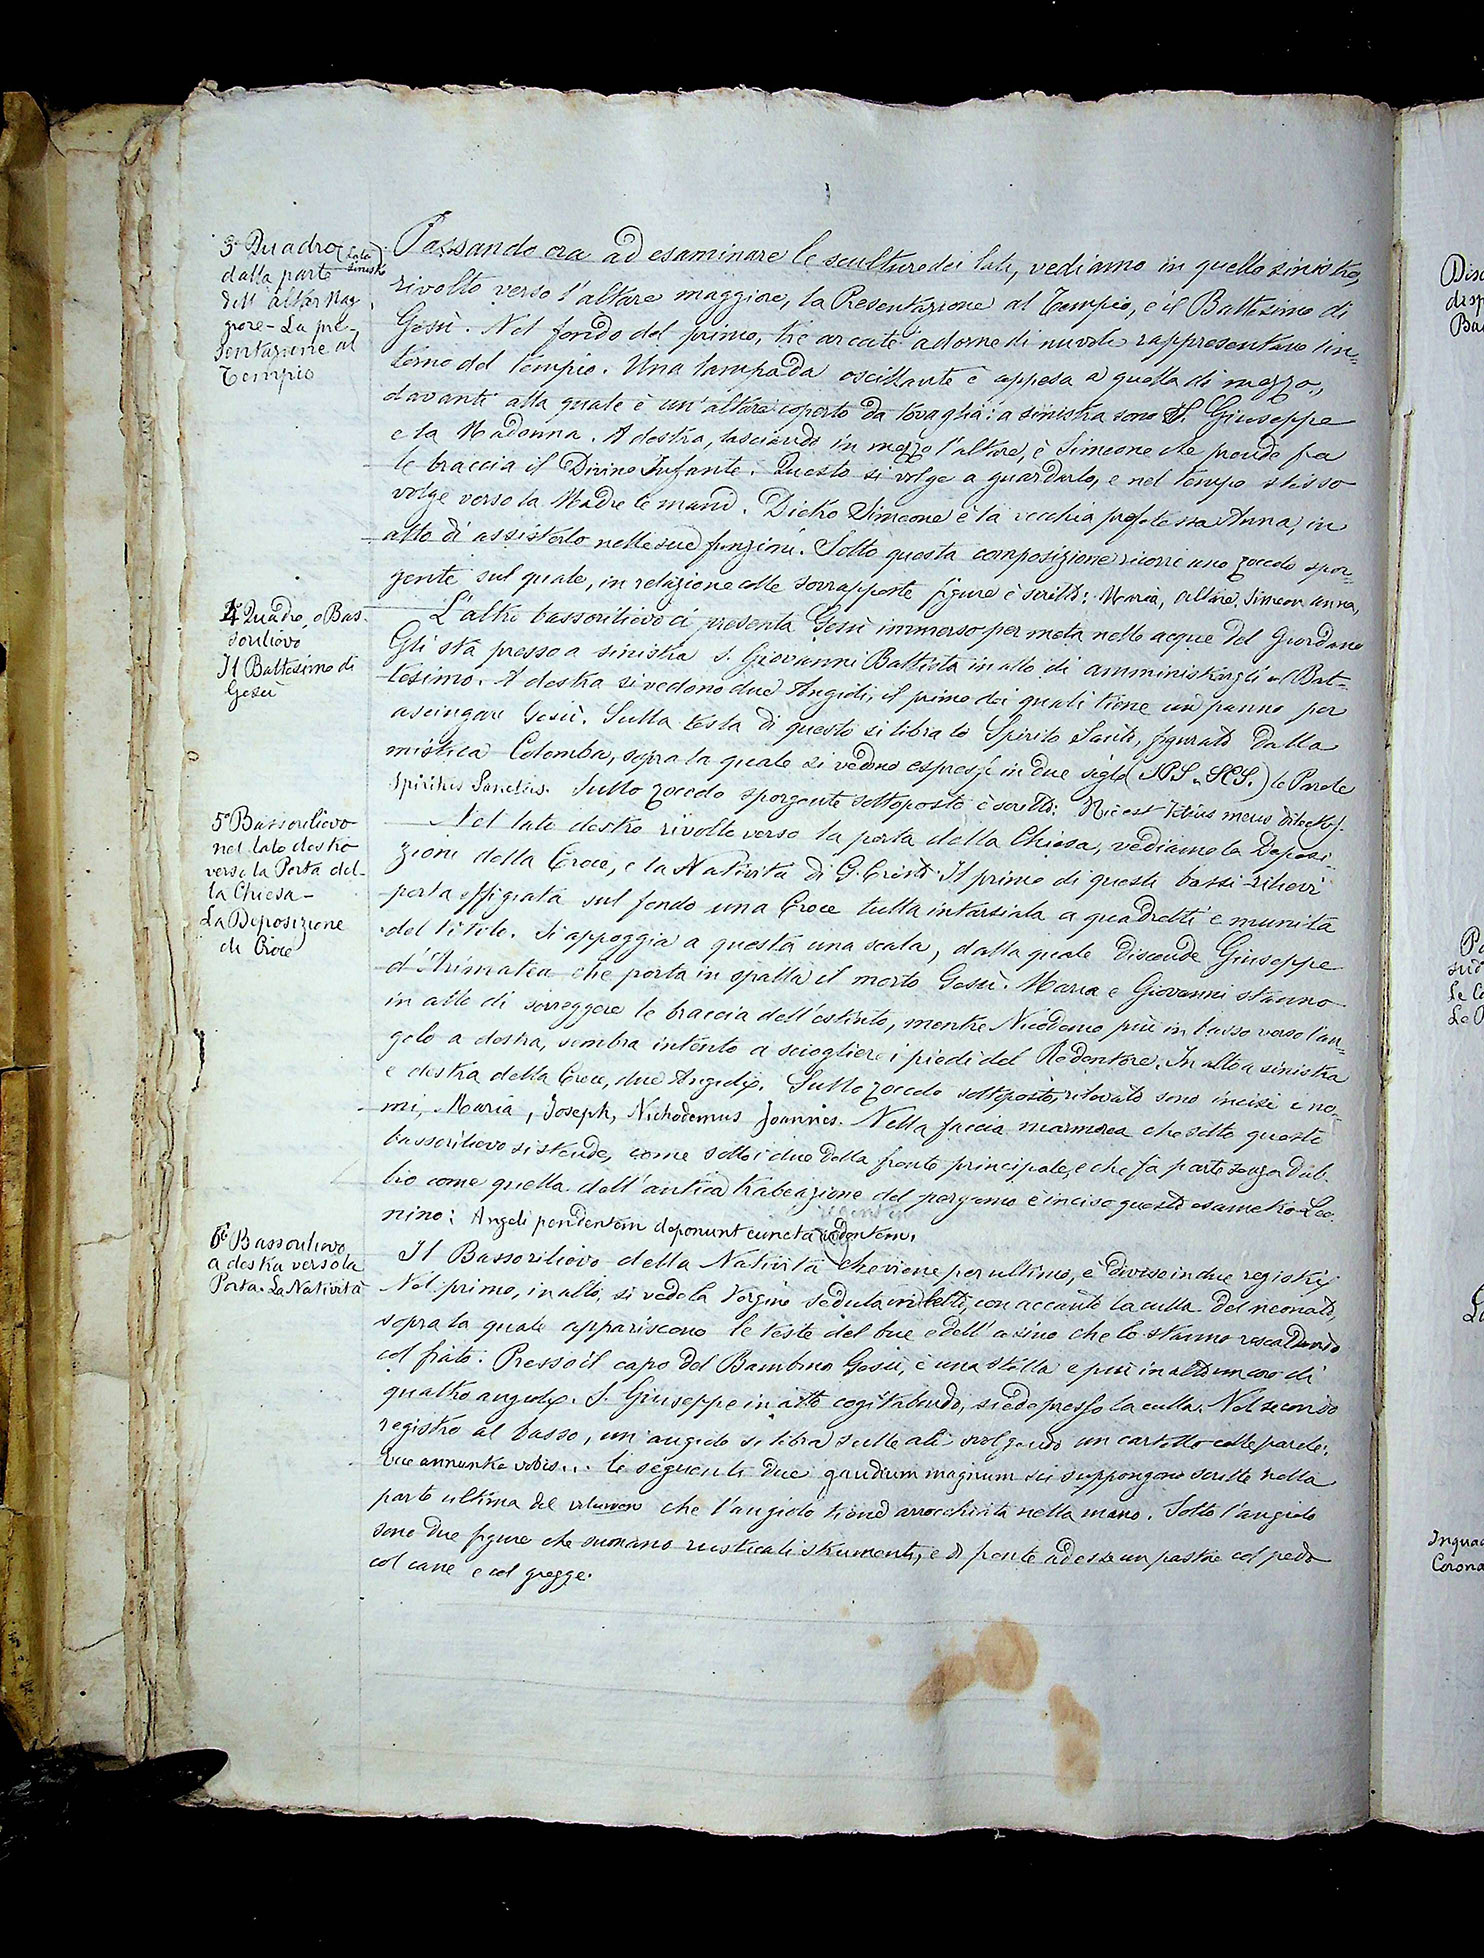 3º Quadro (lato sinistro)
dalla parte
dell'altar Mag-
giore - La pre-
sentazione al
Tempio
Passando ora ad esaminare le sculture dei lati, vediamo in quello sinistro,
rivolto verso l'altare maggiore, la Presentazione al Tempio, e il Battesimo di
Gesù. Nel fondo del primo, tre arcate adorne di nuvole rappresentano l'in-
terno del tempio. Una lampada oscillante è appesa a quella di mezzo,
davanti alla quale è un'altare coperto da tovaglia: a sinistra sono S. Giuseppe
e la Madonna. A destra, lasciando in mezzo l'altare, è Simeone che prende fra
le braccia il Divino Infante. Questo si volge a guardarlo, e nel tempo stesso
volge verso la Madre le mani. Dietro Simeone è la vecchia profetessa Anna, in
atto di assisterlo nelle sue funzioni. Sotto questa composizione ricorre uno zoccolo spor-
gente sul quale, in relazione colle sovrapposte figure è scritto: Maria, altare, Simeon anna,
4º Quadro, o Bas-
sorilievo
Il Battesimo di
Gesù
L'altro bassorilievo ci presenta Gesù immerso per metà nelle acque del Giordano
Gli sta presso a sinistra S. Giovanni Battista in atto di amministrargli il Bat-
tesimo. A destra si vedono due Angioli, il primo dei quali tiene un panno per
asciugare Gesù. Sulla testa di questo si libra lo Spirito Santo, figurato dalla
mistica Colomba, sopra la quale si vedono espresse in due sigle (SPS. SCS.) le Parole
Spiritus Sanctus. Sullo zoccolo sporgente sottoposto è scritto: Hic est filius meus dilectus.
5º Bassorilievo
nel lato destro
verso la Porta del-
la Chiesa -
La Deposizione
di Croce
Nel lato destro rivolto verso la porta della Chiesa, vediamo la Deposi-
zione della Croce, e la Natività di G. Cristo. Il primo di questi bassi-rilievi
porta effigiata sul fondo una Croce tutta intarsiata a quadretti e munita
del titolo. Si appoggia a questa una scala, dalla quale discende Giuseppe
d'Arimatea che porta in spalla il morto Gesù. Maria e Giovanni stanno
in atto di sorreggere le braccia dell'estinto, mentre Nicodemo più in basso verso l'an-
golo a destra, sembra intento a sciogliere i piedi del Redentore. In alto a sinistra
e destra della Croce, due Angioli. Sullo zoccolo sottoposto, rilevato sono incisi i no-
mi, Maria, Joseph, Nichodemus Joannes. Nella faccia marmorea che sotto questo
bassorilievo si stende, come sotto i due della fronte principale, e che fa parte senza dub-
bio come quella dell'antica trabeazione del pergamo è inciso questo esametro Leo-
nino: Angeli pendentem deponunt cuncta
6º Bassorilievo
a destra verso la
Porta. La Natività
Il Bassorilievo della Natività che viene per ultimo, è diviso in due registri
Nel primo, in alto, si vede la Vergine seduta in letto, con accanto la culla del neonato,
sopra la quale appariscono le teste del bue e dell'asino che lo stanno rescaldando
col fiato. Presso il capo del Bambino Gesù, è una stella e più in alto un coro di
quattro angioli. S. Giuseppe in atto cogitabondo, siede presso la culla. Nel secondo
registro al basso, un'angiolo si libra sulle ali svolgendo un cartello colle parole:
Ecce annuntio vobis... le seguenti due gaudium magnum si suppongono scritte nella
parte ultima del volumen che l'angiolo tiene arrocchiata nella mano. Sotto l'angiolo
sono due figure che suonano rusticali strumenti, e di fronte ad esse un pastore col pedo
col cane e col gregge.